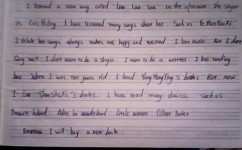 I learned a new song called Love Love Love in the afternoon. The singer
is Cai Yiling. I have learned many songs about her. Such as
I think her songs always makes me happy and excited. I love music. But I don't
sing well. I don't want to be a singer. I want to be a worker. I like reading
too. When I was ten years old I loved Yang Hongying's books. But now
I love books. I have read many classics such as
Treasure Island Alice in wonderland Little women Oliver Twist
I will buy a new book.